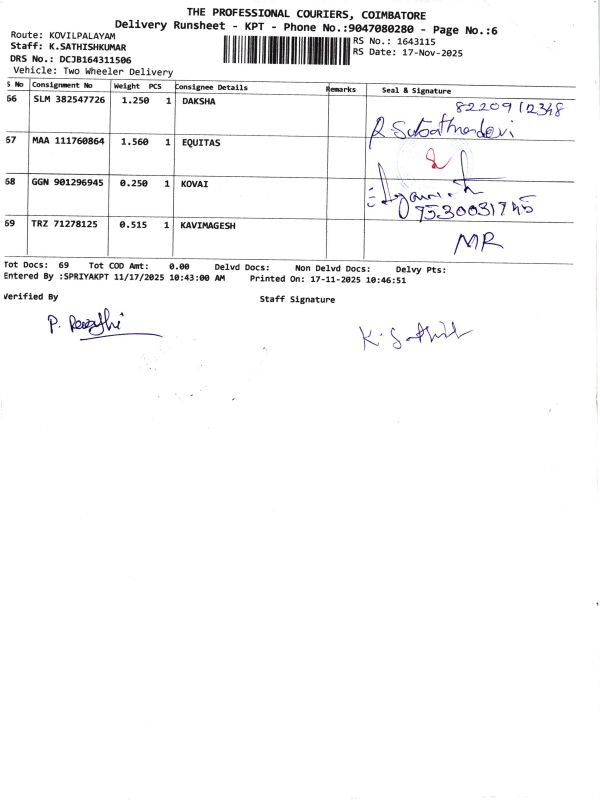 THE PROFESSIONAL COURIERS, COIMBATORE
Delivery Runsheet - KPT - Phone No.:9047080280 - Page No.:6
Route: KOVILPALAYAM
Staff: K.SATHISHKUMAR
DRS No.: DCJB164311506
Vehicle: Two Wheeler Delivery
RS No.: 1643115
RS Date: 17-Nov-2025
S No Consignment No Weight PCS Consignee Details Remarks Seal & Signature
66 SLM 382547726 1.250 1 DAKSHA 8220912348
R Subathradevi
67 MAA 111760864 1.560 1 EQUITAS
68 GGN 901296945 0.250 1 KOVAI
9530031745
69 TRZ 71278125 0.515 1 KAVIMAGESH MR
Tot Docs: 69 Tot COD Amt: 0.00 Delvd Docs: Non Delvd Docs: Delvy Pts:
Entered By :SPRIYAKPT 11/17/2025 10:43:00 AM Printed On: 17-11-2025 10:46:51
Verified By Staff Signature
P. K. Sathish